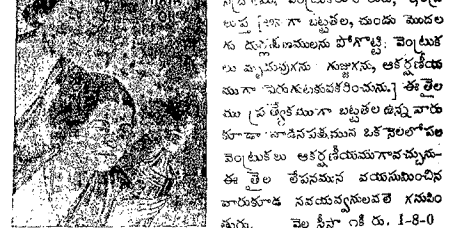 లుప్త గా బట్టతల, చుండు మొదల
గు దుర్లక్షణములను పోగొట్టి వెంట్రుక
లు గుజ్జుగను, ఆకర్షణీయ
ముగా ఈ తైల
ము ప్రత్యేకముగా బట్టతల ఉన్న వారు
కూడా వాడినపక్షమున ఒక నెలలోపల
వెంట్రుకలు ఆకర్షణీయముగావచ్చును-
ఈ తైల లేపనమున వయసుమించిన
వారుకూడ నవయవ్వనులవలె గనుపిం
తురు. వెల సీసా 1కి రు. 1-8-0